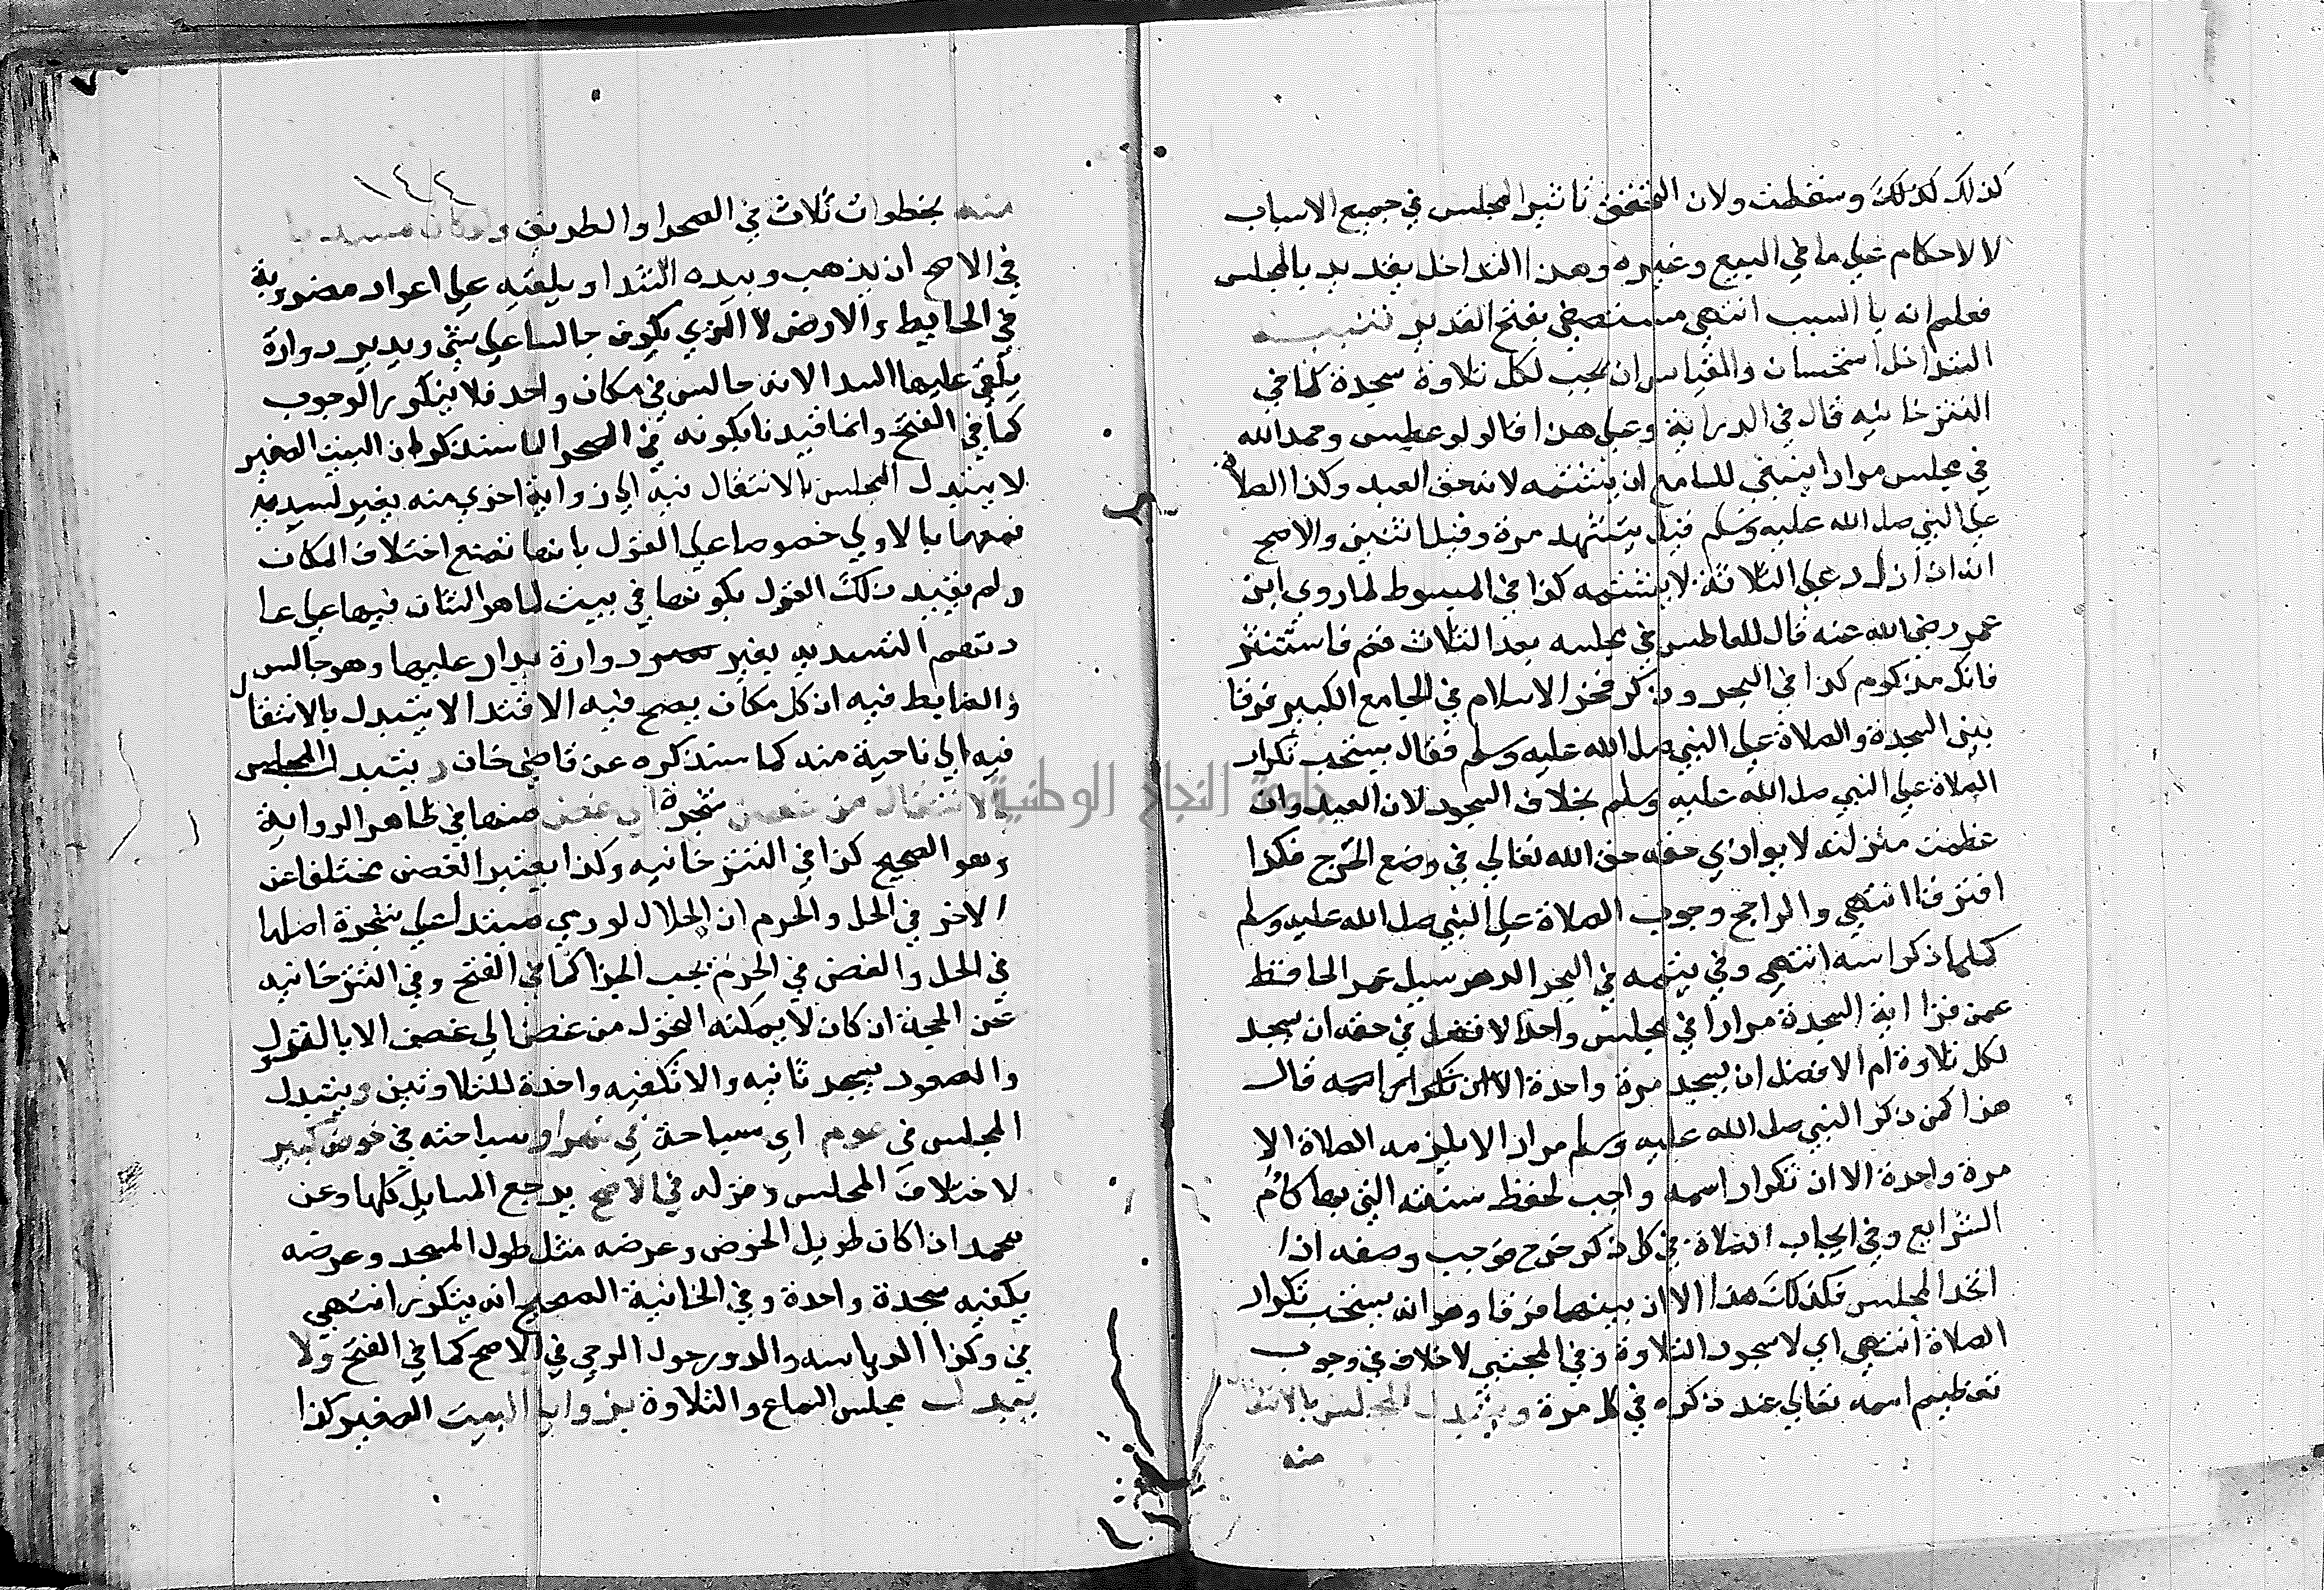 كذلك لذلك وسقطت ولان المتحقق تاثير المجلس في جميع الاسباب
لا الاحكام علي ما في البيع وغيره وهذا التداخل يفيد بالمجلس
فعلم انه بالسبب انتهي من فتح القدير تنبيه
التداخل استحسان والقياس ان تجب لكل تلاوة سجدة كما في
التترخانيه قال في الدراية وعلي هذا قالوا لو عطس وحمد الله
في مجلس مرارا ينبغي للسامع ان يشمته لانه حق العبد وكذا الصلاة
علي النبي صل الله عليه وسلم قيل يتشهد مرة وقيل اثنين والاصح
انه ان زاد علي الثلاثة لا يشمته كذا في المبسوط لما روي ابن
عمر رضي الله عنه قال للعاطس في مجلسه بعد الثلاث قم فاستنثر
فانك مزكوم كذا في البحر وذكر فخر الاسلام في الجامع الكبير فرقا
بين السجدة والصلاة علي النبي صل الله عليه وسلم فقال يستحب تكرار
الصلاة علي النبي صل الله عليه وسلم بخلاف السجود لان العبد وان
عظمت منزلته لا يوازي حقه حق الله تعالي في وضع الحرج فكذا
افترقا انتهي والراجح وجوب الصلاة علي النبي صل الله عليه وسلم
كلما ذكر اسمه انتهي وفي يتيمه في البحر الدهر سيل عمر الحافظ
عمن قرا اية السجدة مرارا في مجلس واحد الافضل في حقه ان يسجد
لكل تلاوة ام الافضل ان يسجد مرة واحدة قال
هذا كمن ذكر النبي صل الله عليه وسلم مرارا لا يلزمه الصلاة الا
مرة واحدة الا ان تكرار اسمه واجب لحفظ سنته التي بها كام
الشرايع وفي ايجاب الصلاة في كل ذكر حرج موجب وصفه اذا
اتحد المجلس فكذلك هذا الا ان بينهما فرقا وهو انه يستحب تكرار
الصلاة انتهي اي لا سجود التلاوة وفي المجتبي لا خلاف في وجوب
تعظيم اسمه تعالي عند ذكره في كل مرة ويتبدل المجلس بالانتقال
منه
١٤٤
منه بخطوات ثلاث في الصحرا والطريق
في الاصح ان يذهب وبيده السدا ويلقيه علي اعواد مضروبة
في الحايط والارض لا الذي يكون جالسا علي شي ويدير دوارة
يلقي عليها السدا لانه جالس في مكان واحد فلا يتكرر الوجوب
كما في الفتح وانما قيدنا بكونه في الصحرا لما سنذكر ان البيت الصغير
لا يتبدل المجلس بالانتقال فيه الي زواية اخري منه بغير تسدية
فمعها بالاولي خصوصا علي القول بانها تمنع اختلاف المكان
ولم يقيد ذلك القول بكونها في بيت
التسدية بغير دوارة يدار عليها وهو جالس
والضابط فيه ان كل مكان يصح فيه الاقتدا لا يتبدل بالانتقال
فيه الي ناحية منه كما سنذكره عن قاضي خان ويتبدل المجلس
بالانتقال من غصن شجرة الي غصن منها في ظاهر الرواية
وهو الصحيح كذا في التترخانيه وكذا يعتبر الغصن مختلفا عن
الاخر في الحل والحرم ان الحلال لو رمي صيدا علي شجرة اصلها
في الحل والغصن في الحرم يجب الجزا كما في الفتح وفي التترخانيه
عن الحجة ان كان لا يمكنه التحول من غصن الي غصن الا بالنزول
والصعود يسجد ثانيه والا تكفيه واحدة للتلاوتين ويتبدل
المجلس في عوم اي سباحة في نهر او سباحته في حوض كبير
لاختلاف المجلس وقوله في الاصح يرجع المسايل كلها وعن
محمد اذا كان طويل الحوض وعرضه مثل طول المسجد وعرضه
يكفيه سجدة واحدة وفي الخانية الصحيح انه يتكرر انتهي
وكذا الدياسه والدور حول الرحي في الاصح كما في الفتح ولا
يتبدل مجلس السماع والتلاوة بزوايا البيت الصغير كذا
جامعة النجاح الوطنية